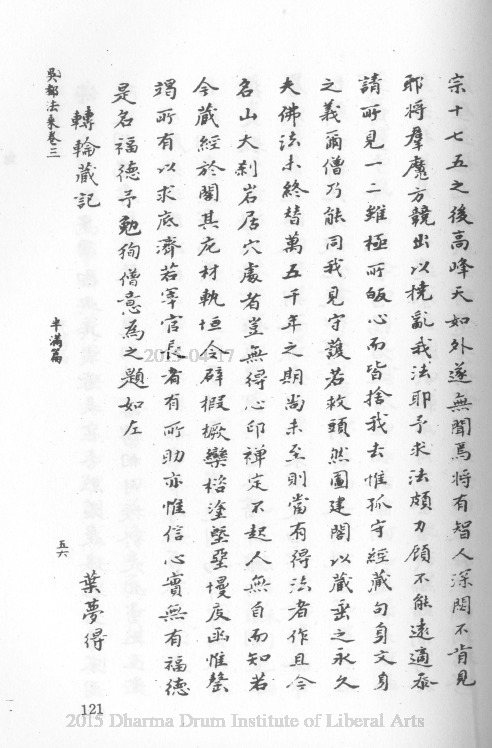 宗十七五之後高峰天如外遂無聞焉將有智人深閟不肯見
耶將羣魔方競出以撓亂我法耶予求法頗力顧不能遠適叅
請所見一二雖極所皈心而皆捨我去惟孤守經藏句身文身
之義爾僧乃能同我見守護若救頭然圖建閣以藏垂之永久
夫佛法未終替萬五千年之期尚未至則當有得法者作且今
名山大刹岩居穴處者豈無得心印禪定不起人無自而知若
今藏經於閣其庀材執垣令辟椴橛欒楶塗墍堊墁度函惟罄
竭所有以求底濟若宰官長者有所助亦惟信心實無有福德
是名福德予勉徇僧意為之題如左
轉輪藏記
葉夢得
吳都法乘卷三
半滿篇
五六
121
2015-04-17
2015 Dharma Drum Institute of Liberal Arts